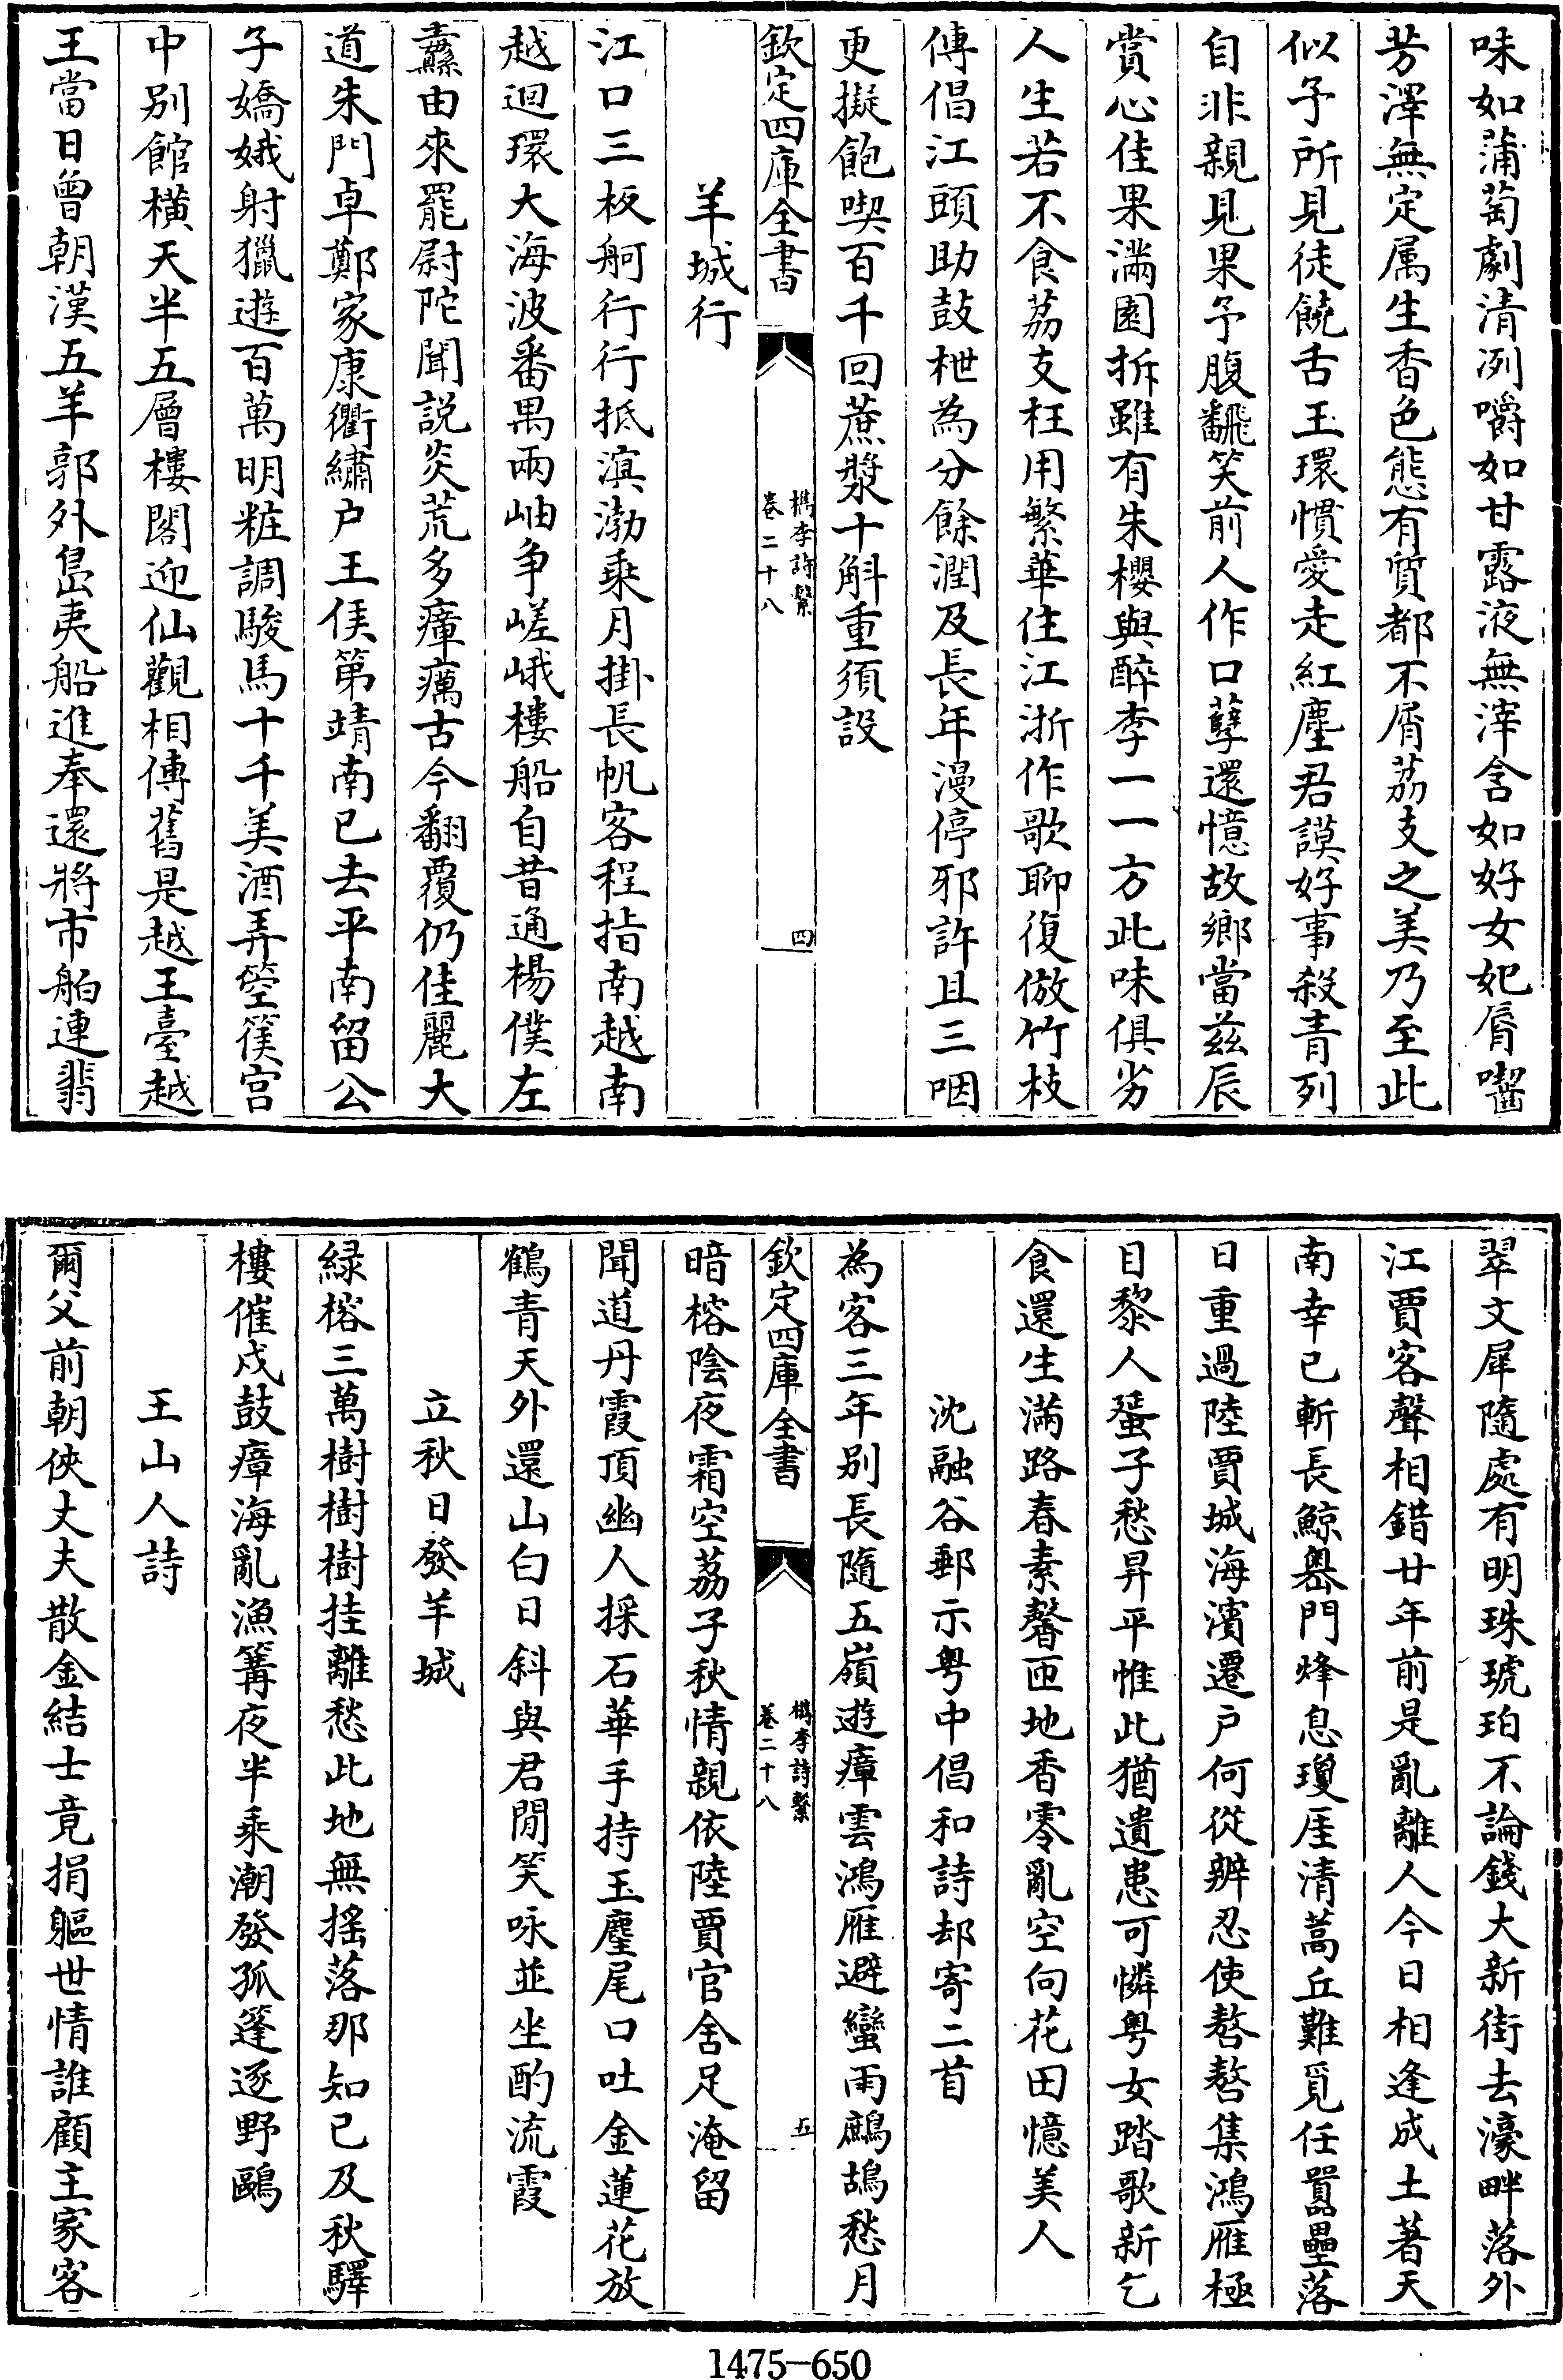 味如蒲萄劇清冽嚼如甘露液無滓含如好女妃脣囓
芳澤無定属生香色態有質都不屑荔支之美乃至此
似予所見徒饒舌玉環慣愛走紅塵君謨好事殺青列
自非親見果予腹飜笑前人作口孽還憶故鄉當兹辰
賞心佳果滿園拆雖有朱櫻與醉李一一方此味俱劣
人生若不食荔支枉用繁華住江浙作歌聊復倣竹枝
傳倡江頭助鼓枻為分餘潤及長年漫停邪許且三咽
更擬飽喫百千回蔗漿十斛重須設
欽定四庫全書
檇李詩繫
卷二十八
四
羊城行
江口三板舸行行抵滇渤乘月掛長帆客程指南越南
越迴環大海波番禺兩岫争嵯峨樓船自昔通楊僕左
纛由來罷尉陀聞説炎荒多瘴癘古今翻覆仍佳麗大
道朱門卓鄭家康衢繡户王侯第靖南已去平南留公
子嬌娥射獵遊百萬明粧調駿馬十千美酒弄箜篌宫
中别館橫天半五層樓閣迎仙觀相傳舊是越王臺越
王當日曾朝漢五羊郭外島夷船進奉還將市舶連翡
翠文犀隨處有明珠琥珀不論錢大新街去濠畔落外
江賈客聲相錯廿年前是亂離人今日相逢成土著天
南幸已斬長鯨粵門烽息瓊厓清蒿丘難覓任囂壘落
日重過陸賈城海濱遷户何從辨忍使嗸嗸集鴻雁極
目黎人蜑子愁昇平惟此猶遺患可憐粤女踏歌新乞
食還生滿路春素馨匝地香零亂空向花田憶美人
沈融谷郵示粤中倡和詩却寄二首
為客三年别長隨五嶺遊瘴雲鴻雁避蠻雨鷓鴣愁月
欽定四庫全書
檇李詩繫
卷二十八
五
暗榕陰夜霜空荔子秋情親依陸賈官舍足淹留
聞道丹霞頂幽人採石華手持玉麈尾口吐金蓮花放
鶴青天外還山白日斜與君閒笑咏並坐酌流霞
立秋日發羊城
緑榕三萬樹樹樹挂離愁此地無摇落那知已及秋驛
樓催戍鼓瘴海亂漁篝夜半乘潮發孤篷逐野鷗
王山人詩
爾父前朝俠丈夫散金結士竟捐軀世情誰顧主家客
1475-650